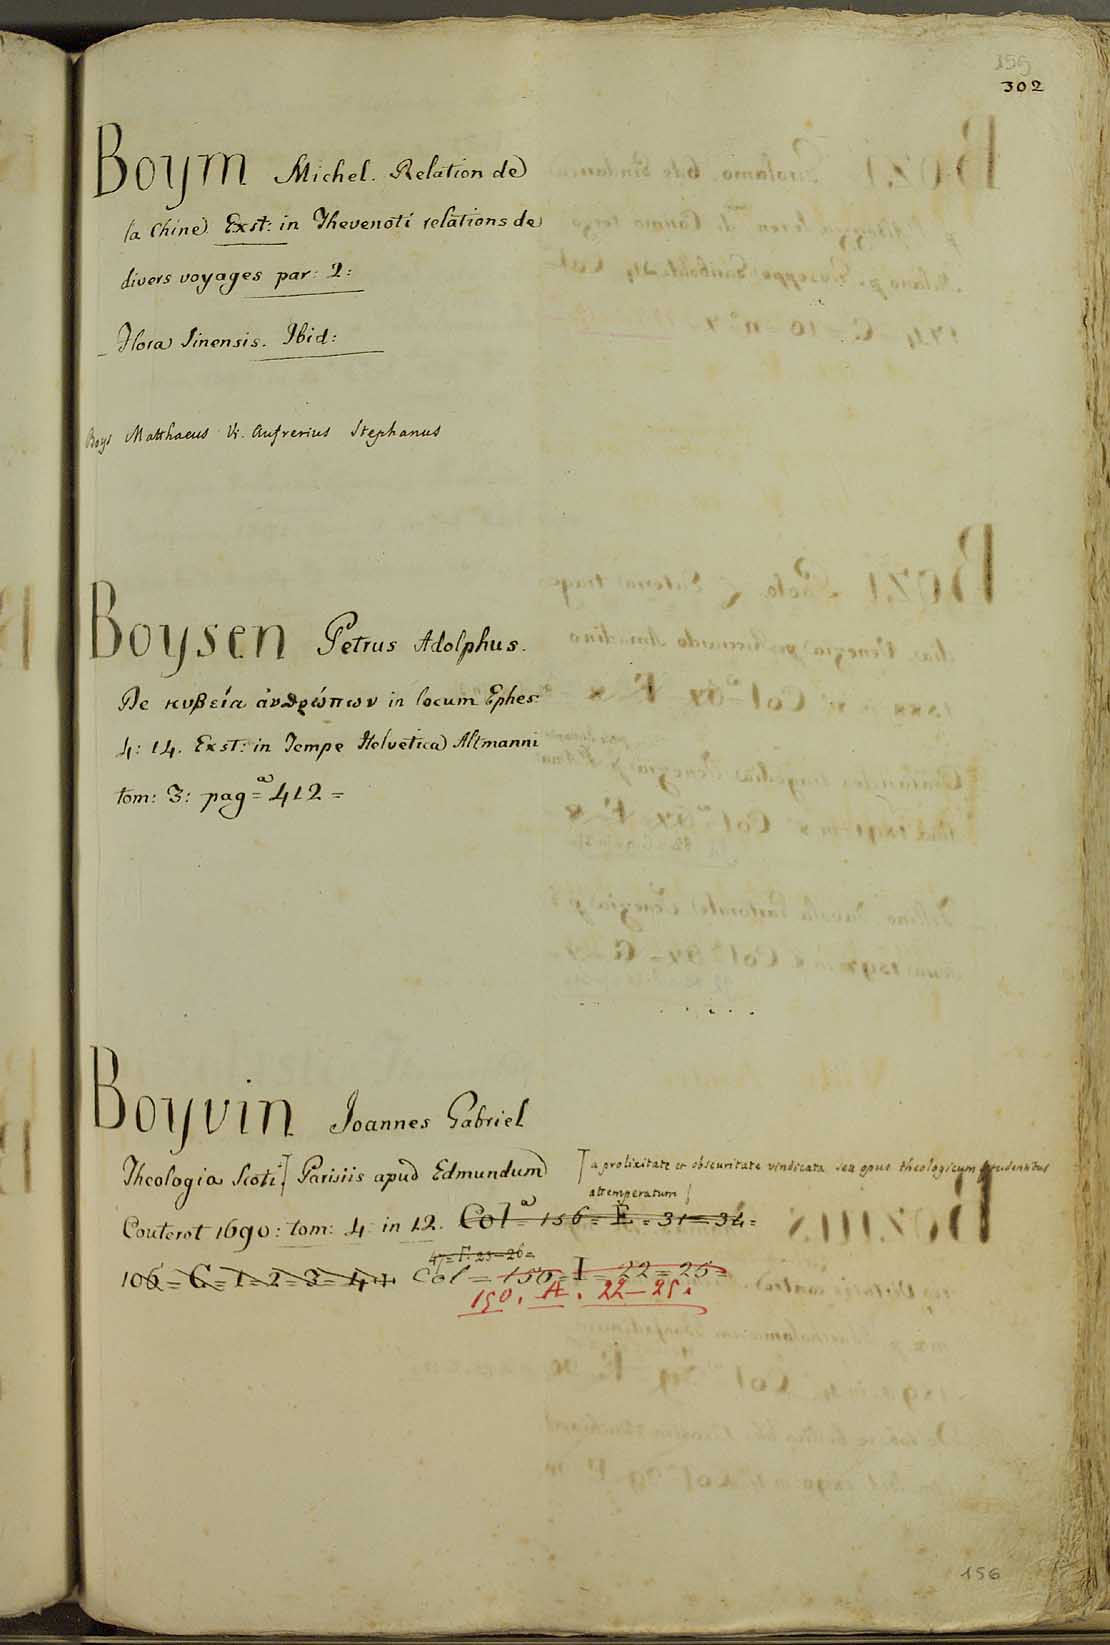 155
302
Boym Michel. Relation de
la Chine. Exst: in Thevenoti relations de
divers voyages par: 2:
_ Flora Sinensis. Ibid:
Boys Matthaeus V. Aufrerius Stephanus
Boysen Petrus Adolphus.
De κυβεία ἀνθρώπων in locum Ephes:
4: 14. Exst: in Tempe Helvetica Altmanni
tom: 3: pag.a = 412 =
Boyvin Joannes Gabriel
Theologia Scoti [ Parisiis apud Edmundum
[ a prolixitate et obscuritate vindicata seu opus theologicum studentibus
attemperatum ]
Couterot 1690: tom: 4: in 12. Col.a = 156 = E = 31 = 34 =
47 = F: 23 = 26 =
106 = C = 1 = 2 = 3 = 4 = Col = 150 = I = 22 = 25 =
150. A. 22 — 25.
156